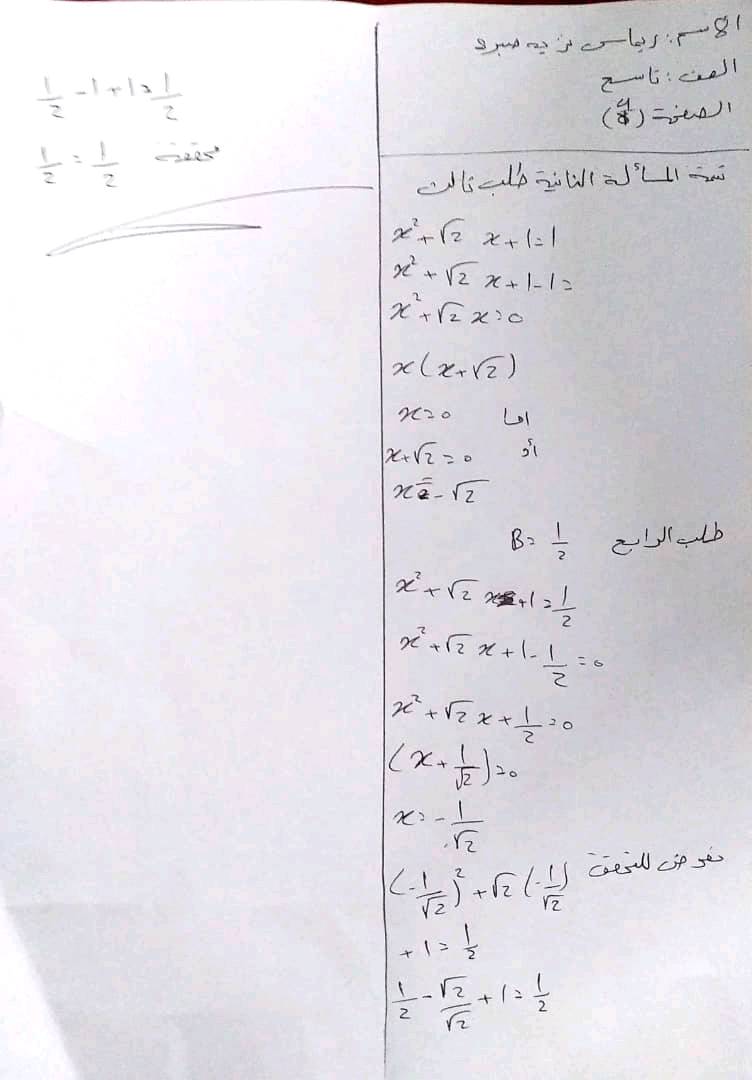 الاسم: ريماس نزيه صبرو
الصف: تاسع
الصفحة (4)
تتمة المسألة الثانية طلب ثالث
x² + √2 x + 1 = 1
x² + √2 x + 1 - 1 =
x² + √2 x = 0
x(x + √2)
x = 0 اما
x + √2 = 0 أو
x = -√2
طلب الرابع B = 1/2
x² + √2 x + 1 = 1/2
x² + √2 x + 1 - 1/2 = 0
x² + √2 x + 1/2 = 0
(x + 1/√2) = 0
x = -1/√2
نعوض للتحقق
(-1/√2)² + √2 (-1/√2)
+ 1 = 1/2
1/2 - √2/√2 + 1 = 1/2
1/2 - 1 + 1 = 1/2
1/2 = 1/2 محققة